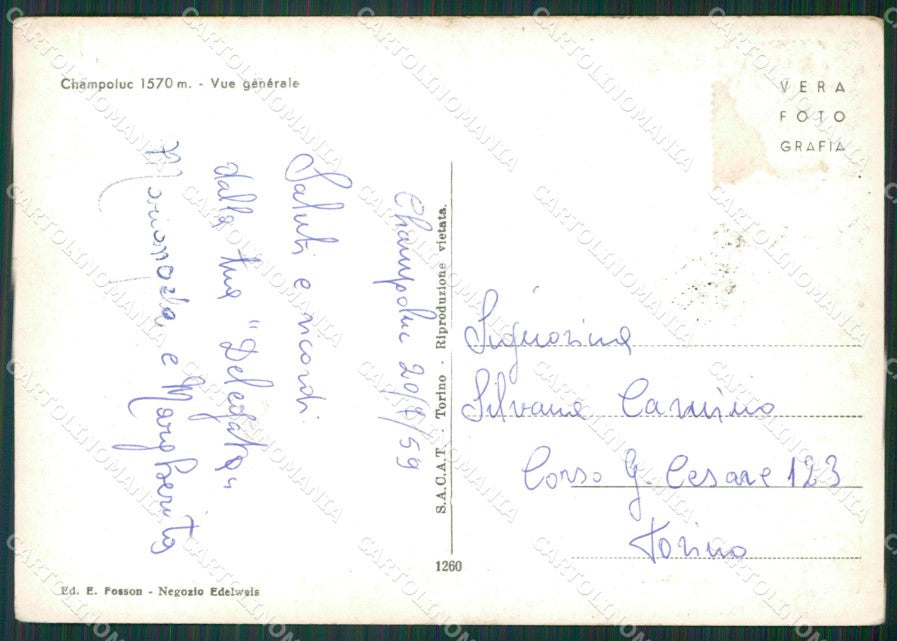 Champoluc 1570 m. - Vue générale
VERA
FOTO
GRAFIA
Champoluc 20/8/59
Saluti e ricordi
dalla tua "Delegata"
e Margherita
S.A.C.A.T. - Torino - Riproduzione vietata.
1260
Signorina
Silvana Camino
Corso G. Cesare 123
Torino
Ed. E. Fosson - Negozio Edelweis
CARTOLINOMANIA